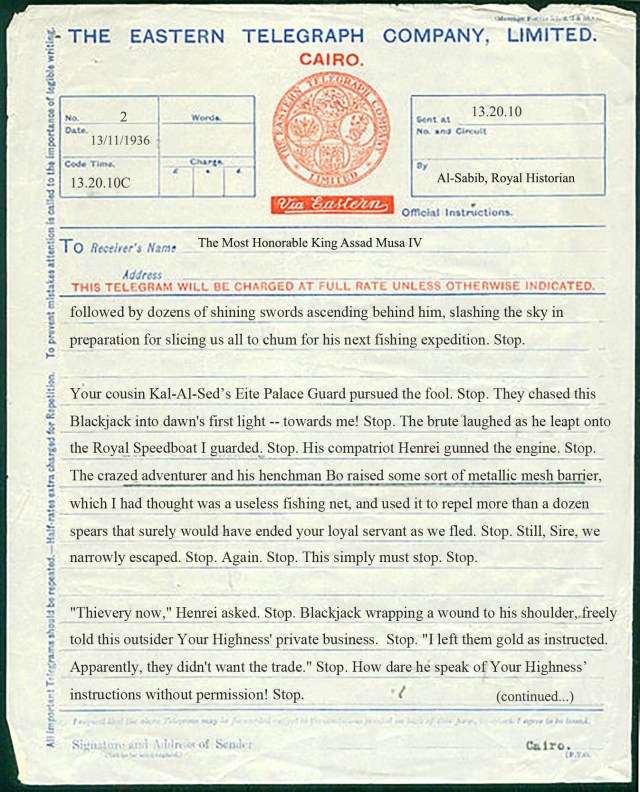 THE EASTERN TELEGRAPH COMPANY, LIMITED.
CAIRO.
THE EASTERN TELEGRAPH COMPANY LIMITED
Via Eastern
No. 2
Words.
Date. 13/11/1936
Code Time.
13.20.10C
Charge.
£ s. d.
Sent at 13.20.10
No. and Circuit
By
Al-Sabib, Royal Historian
Official Instructions.
TO Receiver's Name The Most Honorable King Assad Musa IV
Address
THIS TELEGRAM WILL BE CHARGED AT FULL RATE UNLESS OTHERWISE INDICATED.
followed by dozens of shining swords ascending behind him, slashing the sky in
preparation for slicing us all to chum for his next fishing expedition. Stop.
Your cousin Kal-Al-Sed’s Eite Palace Guard pursued the fool. Stop. They chased this
Blackjack into dawn's first light -- towards me! Stop. The brute laughed as he leapt onto
the Royal Speedboat I guarded. Stop. His compatriot Henrei gunned the engine. Stop.
The crazed adventurer and his henchman Bo raised some sort of metallic mesh barrier,
which I had thought was a useless fishing net, and used it to repel more than a dozen
spears that surely would have ended your loyal servant as we fled. Stop. Still, Sire, we
narrowly escaped. Stop. Again. Stop. This simply must stop. Stop.
"Thievery now," Henrei asked. Stop. Blackjack wrapping a wound to his shoulder, freely
told this outsider Your Highness' private business. Stop. "I left them gold as instructed.
Apparently, they didn't want the trade." Stop. How dare he speak of Your Highness’
instructions without permission! Stop.
(continued...)
Signature and Address of Sender
Cairo.
[P.T.O.
All important Telegrams should be repeated.—Half-rates extra charged for Repetition. To prevent mistakes attention is called to the importance of legible writing.